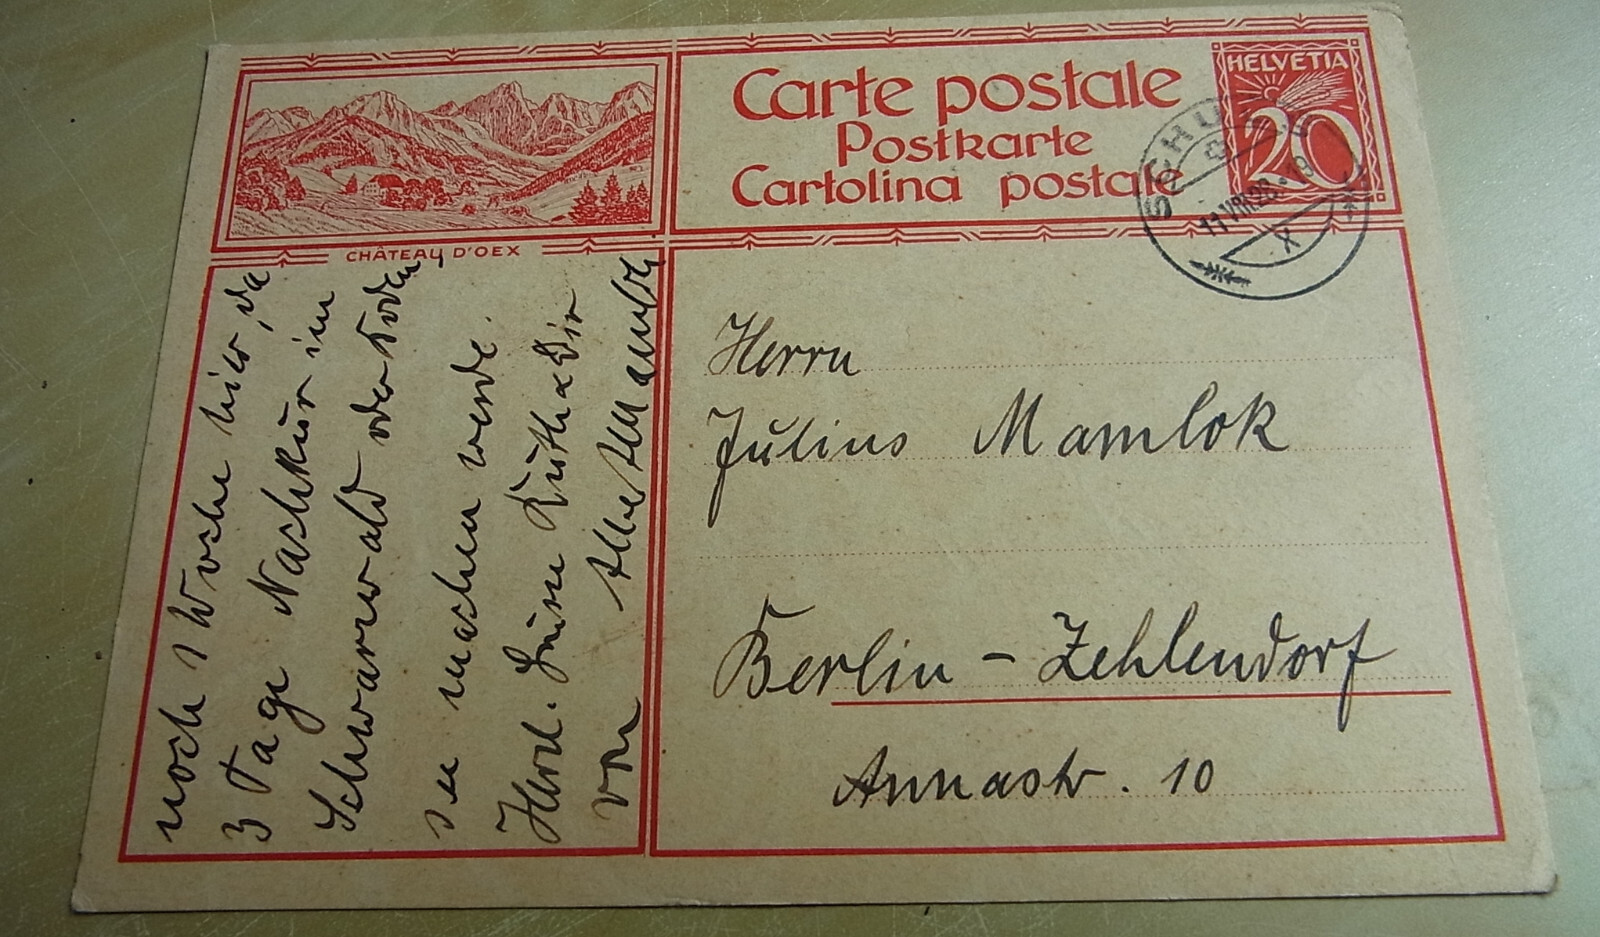 Carte postale
Postkarte
Cartolina postale
HELVETIA
20
SCHULS
11.VIII.28.-19
X
CHÂTEAU D'OEX
noch 1 Woche hier, da
3 Tage Nachkur im
Schwarzwald oder
zu machen werde.
Herzl. Grüße Käthe & Dir
von
Herrn
Julius Mamlok
Berlin - Zehlendorf
Annastr. 10